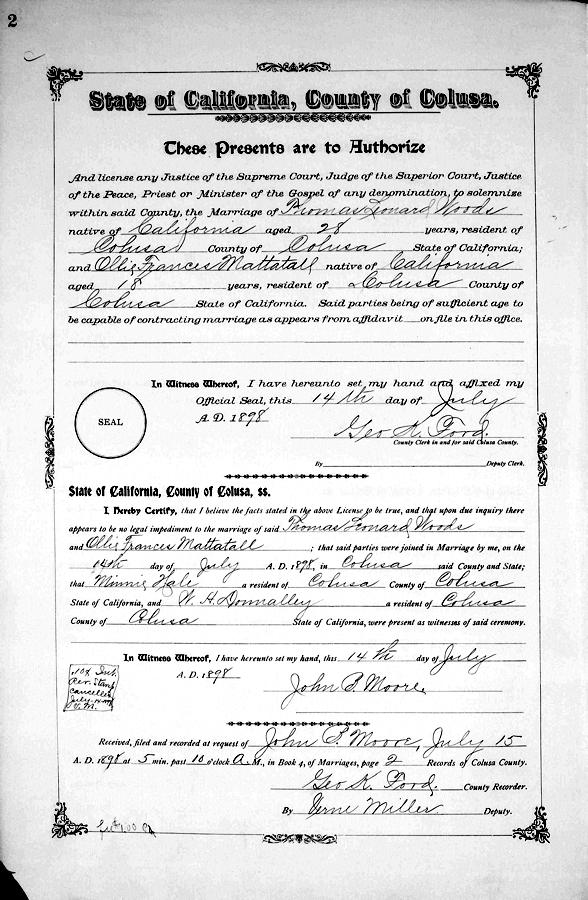 2
State of California, County of Colusa.
These Presents are to Authorize
And license any Justice of the Supreme Court, Judge of the Superior Court, Justice
of the Peace, Priest or Minister of the Gospel of any denomination, to solemnize
within said County, the Marriage of Thomas Leonard Woods
native of California aged 28 years, resident of
Colusa County of Colusa State of California;
and Ollie Frances Mattatall native of California
aged 18 years, resident of Colusa County of
Colusa State of California. Said parties being of sufficient age to
be capable of contracting marriage as appears from affidavit on file in this office.
In Witness Whereof, I have hereunto set my hand and affixed my
Official Seal, this 14th day of July
A. D. 1898
SEAL
Geo K. Ford.
County Clerk in and for said Colusa County.
By Deputy Clerk.
State of California, County of Colusa, ss.
I Hereby Certify, that I believe the facts stated in the above License to be true, and that upon due inquiry there
appears to be no legal impediment to the marriage of said Thomas Leonard Woods
and Ollie Frances Mattatall ; that said parties were joined in Marriage by me, on the
14th day of July A. D. 1898, in Colusa said County and State;
that Minnie Hale a resident of Colusa County of Colusa
State of California, and W. H. Donnalley a resident of Colusa
County of Colusa State of California, were present as witnesses of said ceremony.
In Witness Whereof, I have hereunto set my hand, this 14th day of July
A. D. 1898
10¢ Int.
Rev. Stamp
Cancelled
July
John B. Moore.
Received, filed and recorded at request of John B. Moore, July 15
A. D. 1898 at 5 min. past 10 o'clock A. M., in Book 4, of Marriages, page 2 Records of Colusa County.
Geo K. Ford. County Recorder.
By Verne Miller. Deputy.